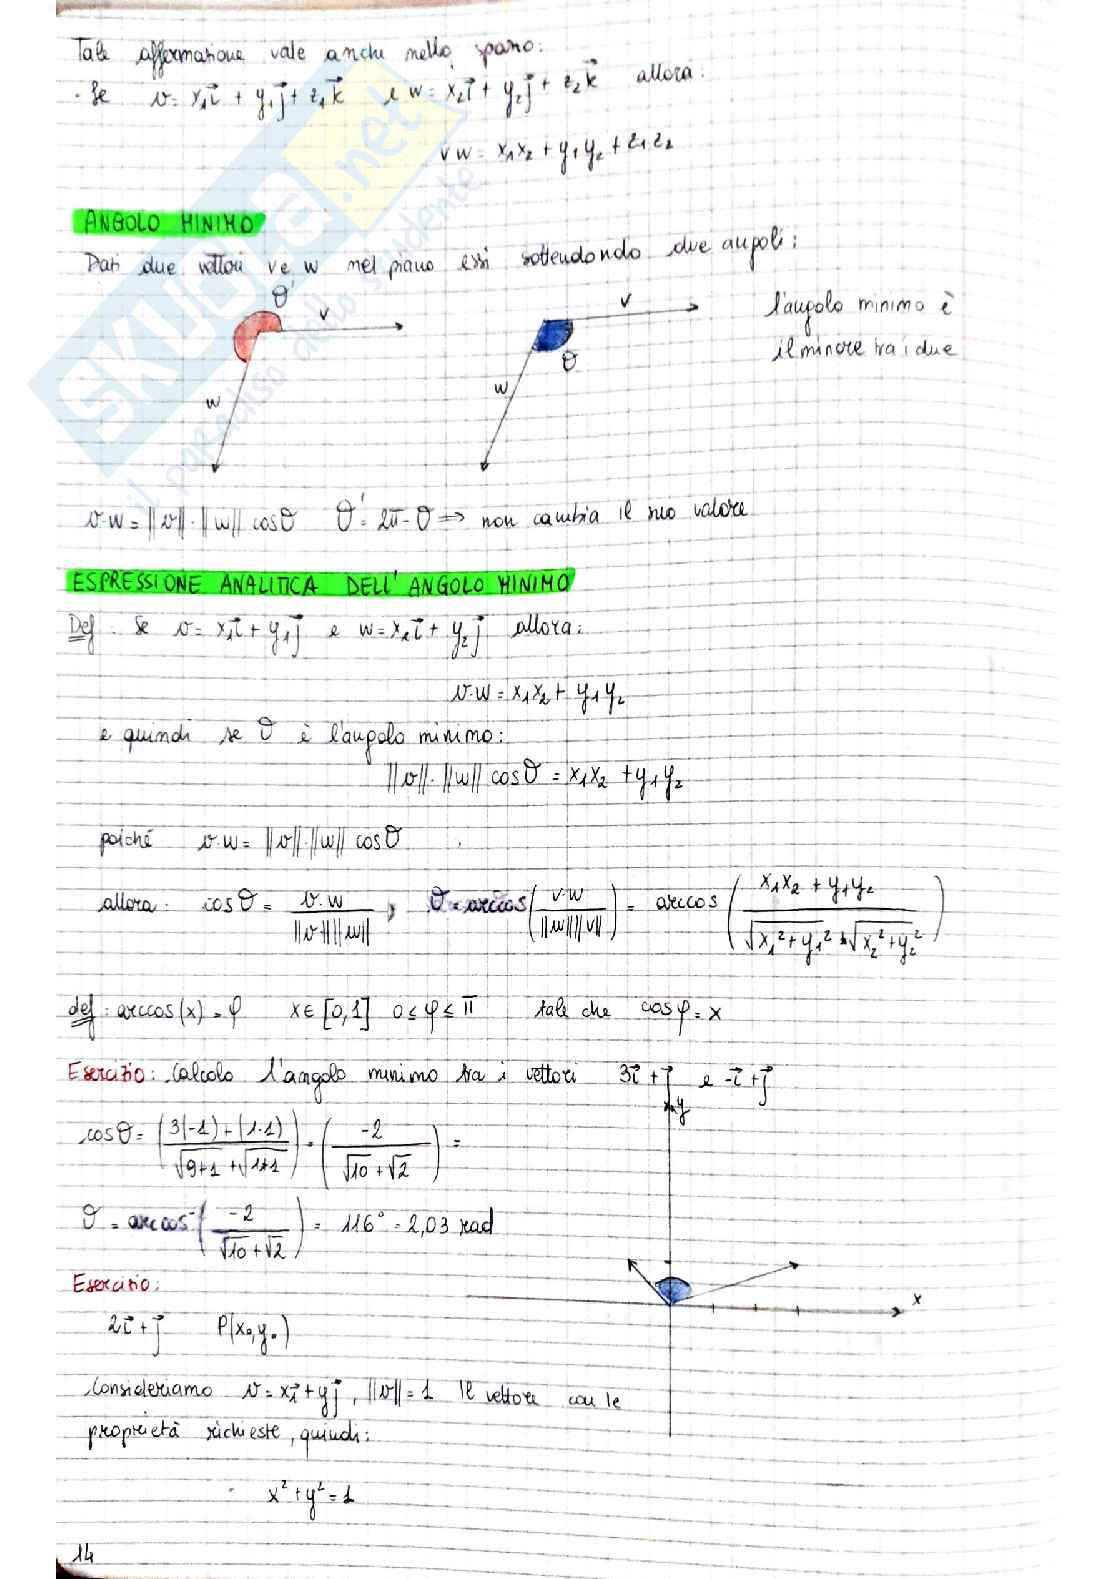 Tale affermazione vale anche nello spazio:
· Se v = x₁i⃗ + y₁j⃗ + z₁k⃗ e w = x₂i⃗ + y₂j⃗ + z₂k⃗ allora:
v w = x₁x₂ + y₁y₂ + z₁z₂
ANGOLO MINIMO
Dati due vettori v e w nel piano essi sottendondo due angoli:
θ' v w
v θ w
l'angolo minimo è
il minore tra i due
v·w = ||v||·||w|| cosθ θ' = 2π - θ => non cambia il suo valore
ESPRESSIONE ANALITICA DELL'ANGOLO MINIMO
Def: Se v = x₁i⃗ + y₁j⃗ e w = x₂i⃗ + y₂j⃗ allora:
v·w = x₁x₂ + y₁y₂
e quindi se θ è l'angolo minimo:
||v||·||w|| cosθ = x₁x₂ + y₁y₂
poiché v·w = ||v||·||w|| cosθ
allora: cosθ = v·w / ||v|| ||w|| , θ = arccos (v·w / ||w|| ||v||) = arccos (x₁x₂ + y₁y₂ / √x₁²+y₁² · √x₂²+y₂²)
def: arccos(x) = φ x∈[0,1] 0≤φ≤π tale che cosφ = x
Esercizio: Calcolo l'angolo minimo tra i vettori 3i⃗ + j⃗ e -i⃗ + j⃗
y
cosθ = (3(-1) + (1·1) / √9+1 + √1+1) = (-2 / √10 + √2) =
θ = arccos (-2 / √10 + √2) = 116° = 2,03 rad
Esercizio:
x
2i⃗ + j⃗ P(x₀,y₀)
Consideriamo v = xi⃗ + yj⃗, ||v|| = 1 il vettore con le
proprietà richieste, quindi:
x² + y² = 1
14
SKUOLA.net
il paradiso dello studente